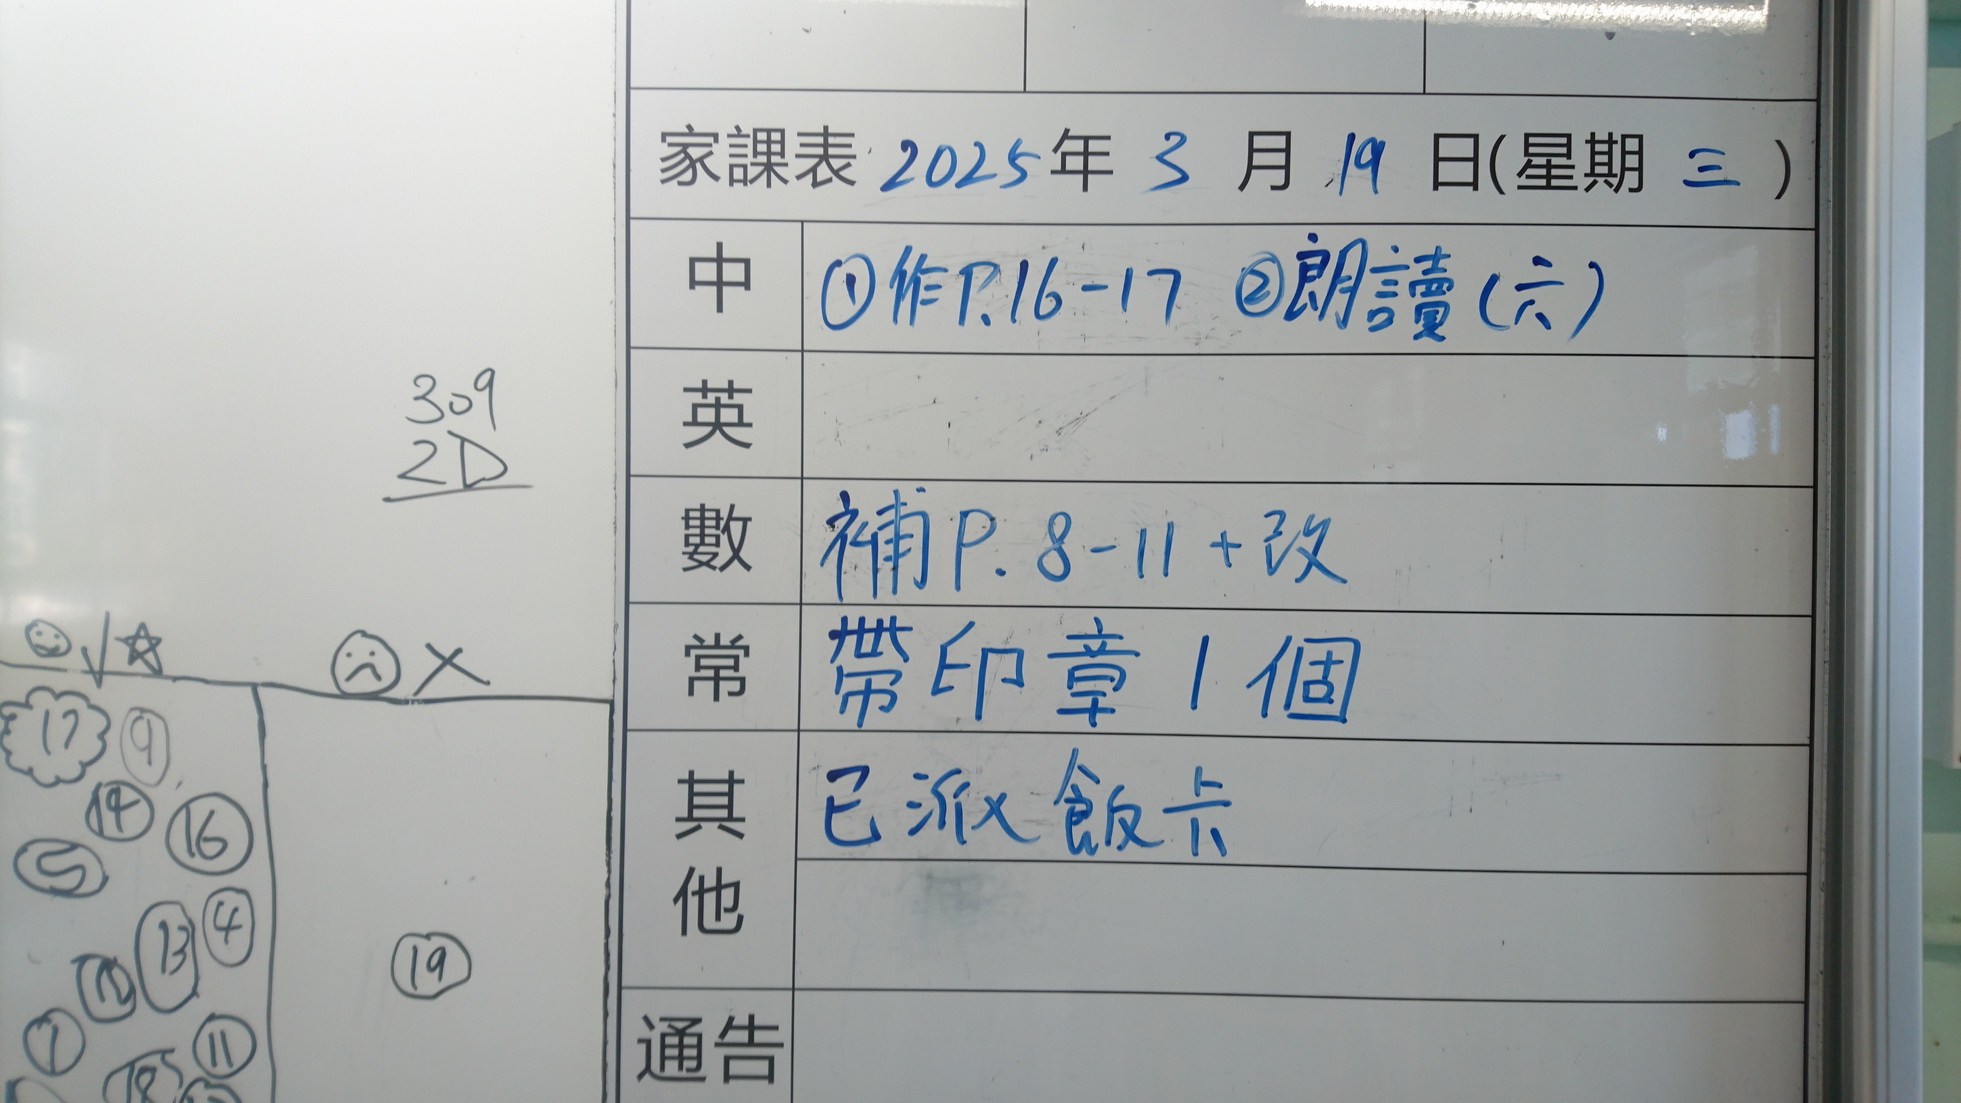 家課表 2025年 3 月 19 日(星期 三 )
中 ①作P.16-17 ②朗讀(六)
英
數 補P. 8-11 + 改
常 帶印章1個
其他 已派飯卡
通告
309
2D
17 9
14 16
5
13 4
12
1 11
18
19